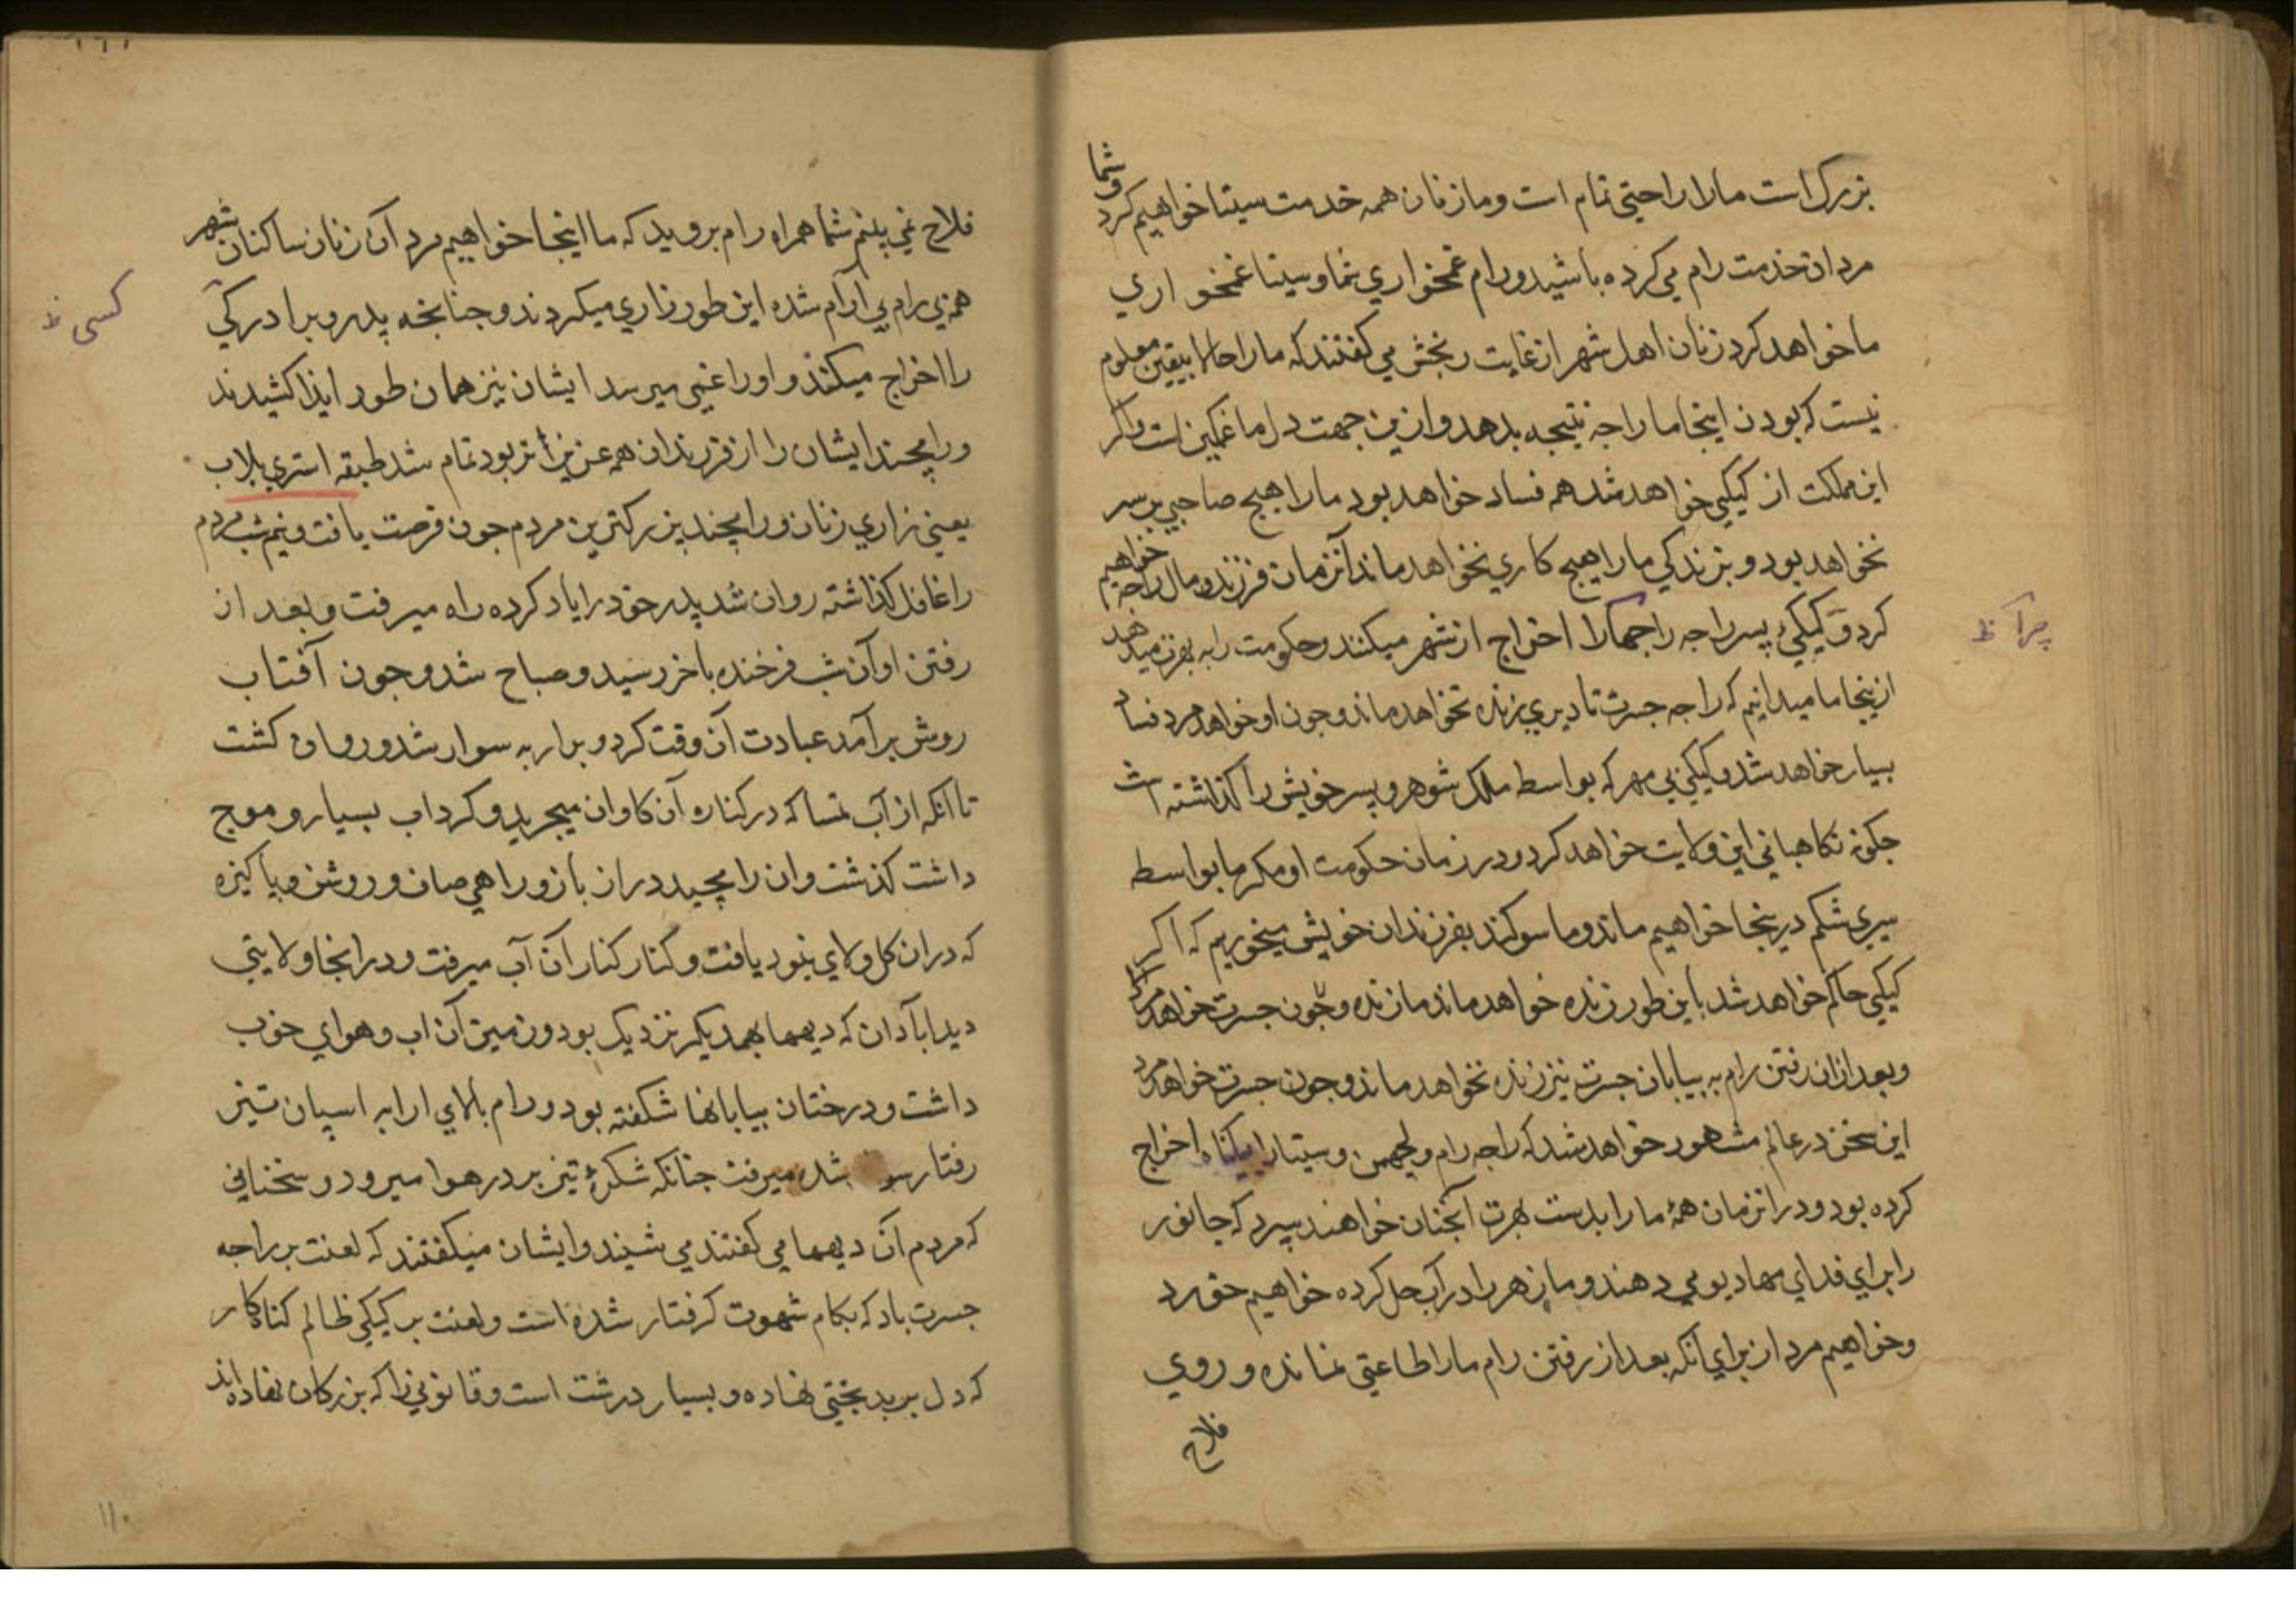 بزرک است مارا راحتی تمام است و ما زنان همه خدمت سیتا خواهیم کرد و شما
مردان خدمت رام می کرده باشید و رام غمخواری شما و سیتا غمخواری
ما خواهد کرد زنان اهل شهر از غایت رنجش می کفتند که مارا حالا بیقین معلوم
نیست که بودن اینجا مارا چه نتیجه بدهد و ازین جهت دل ما غمکین است و اکر
این مملکت از کیکی خواهد شد همه فساد خواهد بود مارا هیچ صاحبی بر سر
نخواهد بود و بزندکی مارا هیچ کاری نخواهد ماند آنزمان فرزند و مال را چه خواهیم
کرد و کیکی پسر راجه را جهکارا اخراج از شهر میکنند و حکومت را به بهرت میدهد
چرا ظ
ازینجا ما میدانیم که راجه جسرت تا دیری زنده نخواهد ماند و چون او خواهد مرد فساد
بسیار خواهد شد و کیکی بی مهر که بواسطه ملک شوهر و پسر خویش را کذاشته است
چکونه نکاهبانی این ولایت خواهد کرد و در زمان حکومت او مکر ما بواسطه
سیری شکم درینجا خواهیم ماند و ما سوکند بفرزندان خویش میخوریم که اکر
کیکی حاکم خواهد شد باین طور زنده خواهد ماند ما زنده و چون جسرت خواهد مرد
و بعد ازان رفتن رام به بیابان جسرت نیز زنده نخواهد ماند و چون جسرت خواهد مرد
این سخن در عالم مشهور خواهد شد که راجه رام و لچهمن و سیتا را بیکناه اخراج
کرده بود و در انزمان همهٔ مارا بدست بهرت آنچنان خواهند سپرد که جانور
را برای فدای مهادیو می دهند و ما زهر را در آب حل کرده خواهیم خورد
و خواهیم مرد از برای آنکه بعد از رفتن رام مارا طاعتی نمانده و روی
فلاح
فلاح نمی بینم شما همراه رام بروید که ما اینجا خواهیم مرد آن زنان ساکنان شهر
همه بی رام بی آرام شده این طور زاری میکردند و چنانچه پدر و برادر کی
کسی ظ
را اخراج میکنند و او را غمی میرسد ایشان نیز همان طور ایذا کشیدند
و رامچند ایشان را از فرزندان همه عزیز تر بود تمام شد طبقه استری بلاب
یعنی زاری زنان و رامچند بزرکترین مردم چون فرصت یافت و نیم شب مردم
را غافل کذاشته روان شد پدر خود را یاد کرده راه میرفت و بعد از
رفتن او آن شب فرخنده باخر رسید و صباح شد و چون آفتاب
روشن برآمد عبادت آن وقت کرد و بر ارابه سوار شد و روان کشت
تا آنکه از آب تمسا که در کناره آن کاوان میچرید و کرداب بسیار و موج
داشت کذشت و ان رامچند دراز بازو راهی صاف و روشن و پاکیزه
که دران کل و لای نبود یافت و کنار کنار آن آب میرفت و در انجا ولایتی
دید ابادان که دیهها بهمدیکر نزدیک بود و زمین آن اب و هوای خوب
داشت و درختان بیابانها شکفته بود و رام بالای ارابه اسپان تیز
رفتار سوار شده میرفت چنانکه شکرهٔ تیز پر در هوا میرود و سخنانی
که مردم آن دیهها می کفتند می شنید و ایشان میکفتند که لعنت بر راجه
جسرت باد که بکام شهوت کرفتار شده است و لعنت بر کیکی ظالم کناه کار
که دل بر بدبختی نهاده و بسیار درشت است و قانونی را که بزرکان نهاده اند
۱۱۰